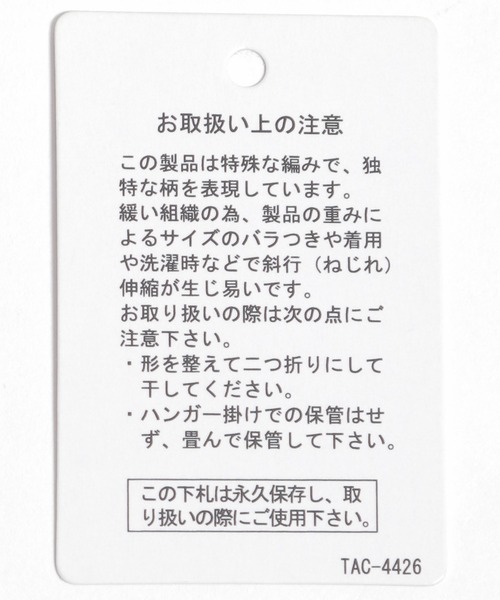 お取扱い上の注意
この製品は特殊な編みで、独
特な柄を表現しています。
緩い組織の為、製品の重みに
よるサイズのバラつきや着用
や洗濯時などで斜行（ねじれ）
伸縮が生じ易いです。
お取り扱いの際は次の点にご
注意下さい。
・形を整えて二つ折りにして
干してください。
・ハンガー掛けでの保管はせ
ず、畳んで保管して下さい。
この下札は永久保存し、取
り扱いの際にご使用下さい。
TAC-4426